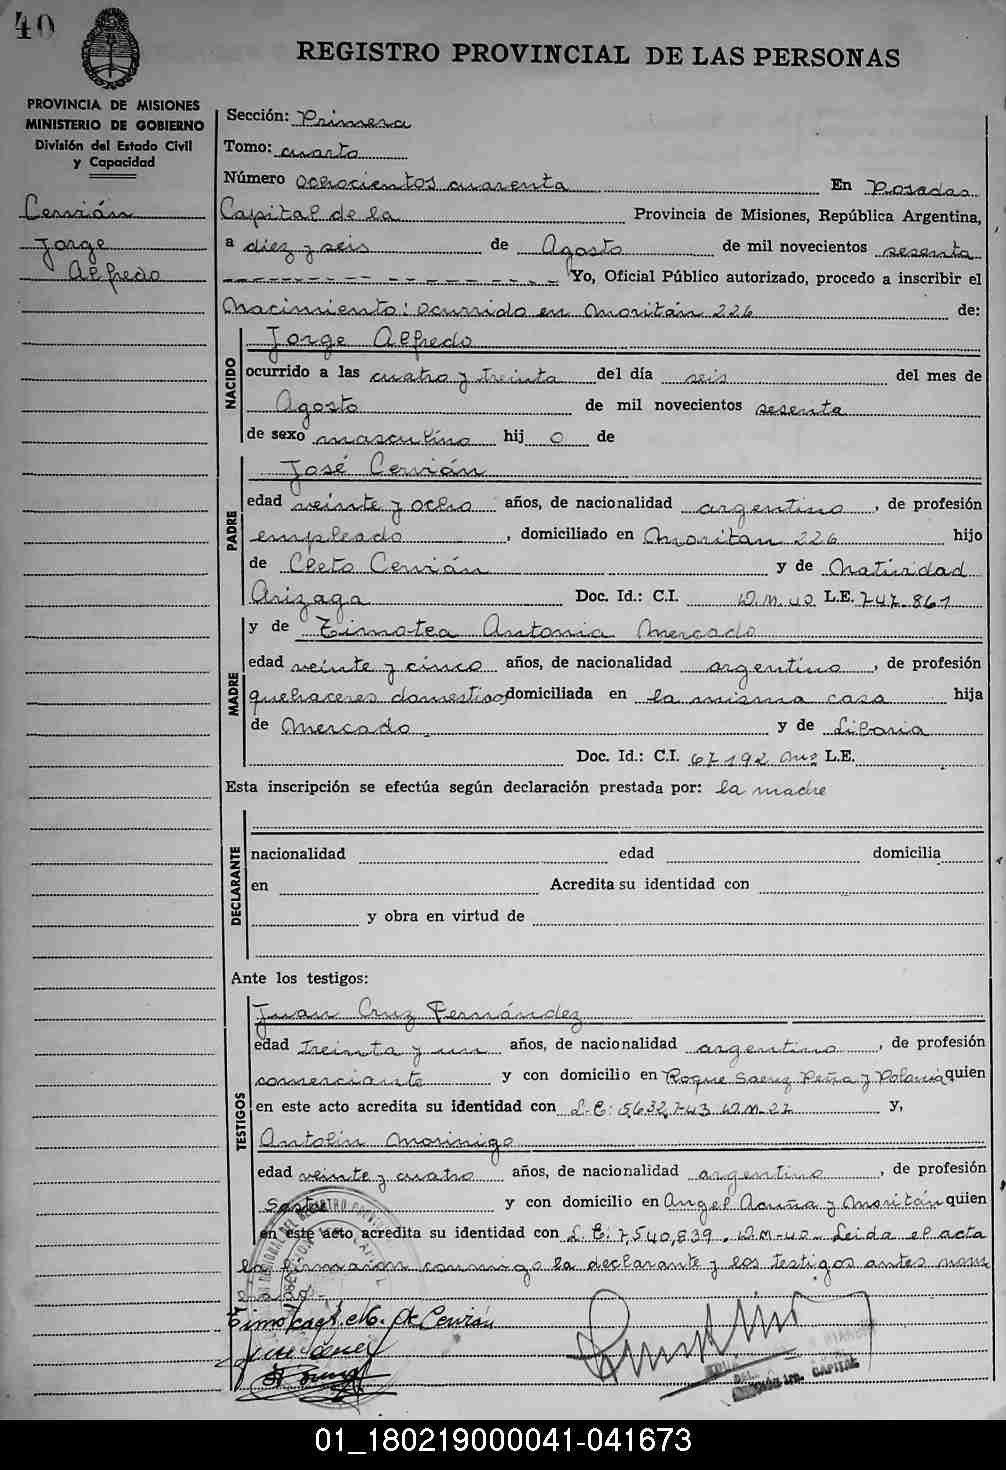 40
REGISTRO PROVINCIAL DE LAS PERSONAS
PROVINCIA DE MISIONES
MINISTERIO DE GOBIERNO
División del Estado Civil
y Capacidad
Cervián
Jorge
Alfredo
Sección: Primera
Tomo: cuarto
Número ochocientos cuarenta En Posadas
Capital de la Provincia de Misiones, República Argentina,
a diez y seis de Agosto de mil novecientos sesenta
Yo, Oficial Público autorizado, procedo a inscribir el
Nacimiento: ocurrido en Moritán 226 de:
NACIDO
Jorge Alfredo
ocurrido a las cuatro y treinta del día seis del mes de
Agosto de mil novecientos sesenta
de sexo masculino hij o de
PADRE
José Cervián
edad veinte y ocho años, de nacionalidad argentino, de profesión
empleado, domiciliado en Moritan 226 hijo
de Cleto Cervián y de Natividad
Arizaga Doc. Id.: C.I. D.M. 40 L.E. 747.861
MADRE
y de Timotea Antonia Mercado
edad veinte y cinco años, de nacionalidad argentino, de profesión
quehaceres domesticos domiciliada en la misma casa hija
de Mercado y de Liboria
Doc. Id.: C.I. 67192 L.E.
Esta inscripción se efectúa según declaración prestada por: la madre
DECLARANTE
nacionalidad edad domicilia
en Acredita su identidad con
y obra en virtud de
Ante los testigos:
TESTIGOS
Juan Cruz Fernández
edad Treinta y un años, de nacionalidad argentino, de profesión
comerciante y con domicilio en Roque Saenz Peña y Polonia quien
en este acto acredita su identidad con L.E: 5632743 D.M-27 y,
Antolin Morinigo
edad veinte y cuatro años, de nacionalidad argentino, de profesión
Sastre y con domicilio en Angel Acuña y Moritán quien
en este acto acredita su identidad con L.E: 7,540,839. D.M-40- Leida el acta
la firmaron conmigo la declarante y los testigos antes nom
CAPITAL
01_180219000041-041673